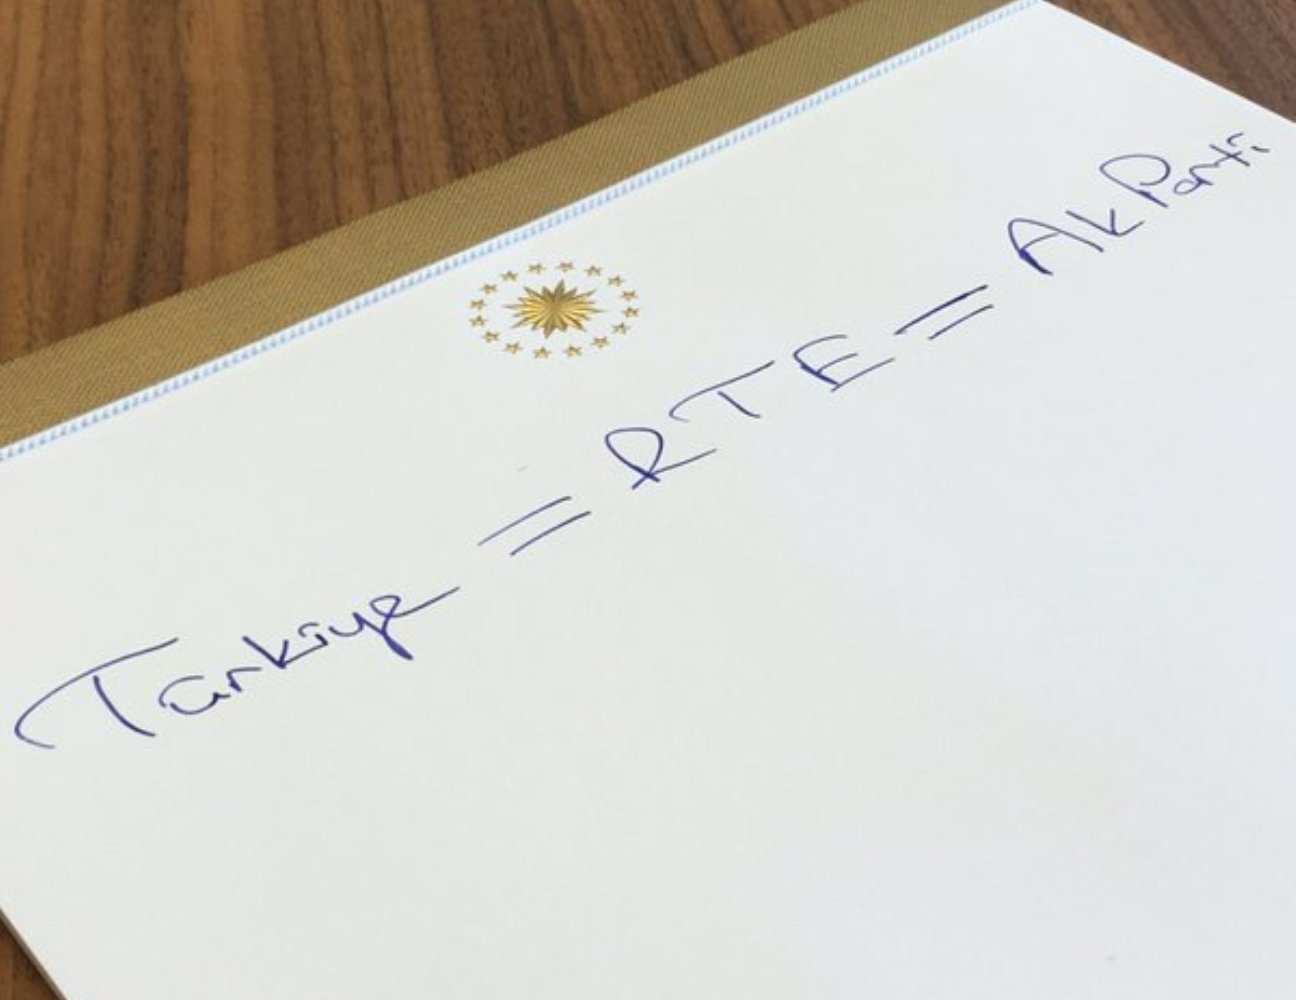 Türkiye = RTE = Ak Parti